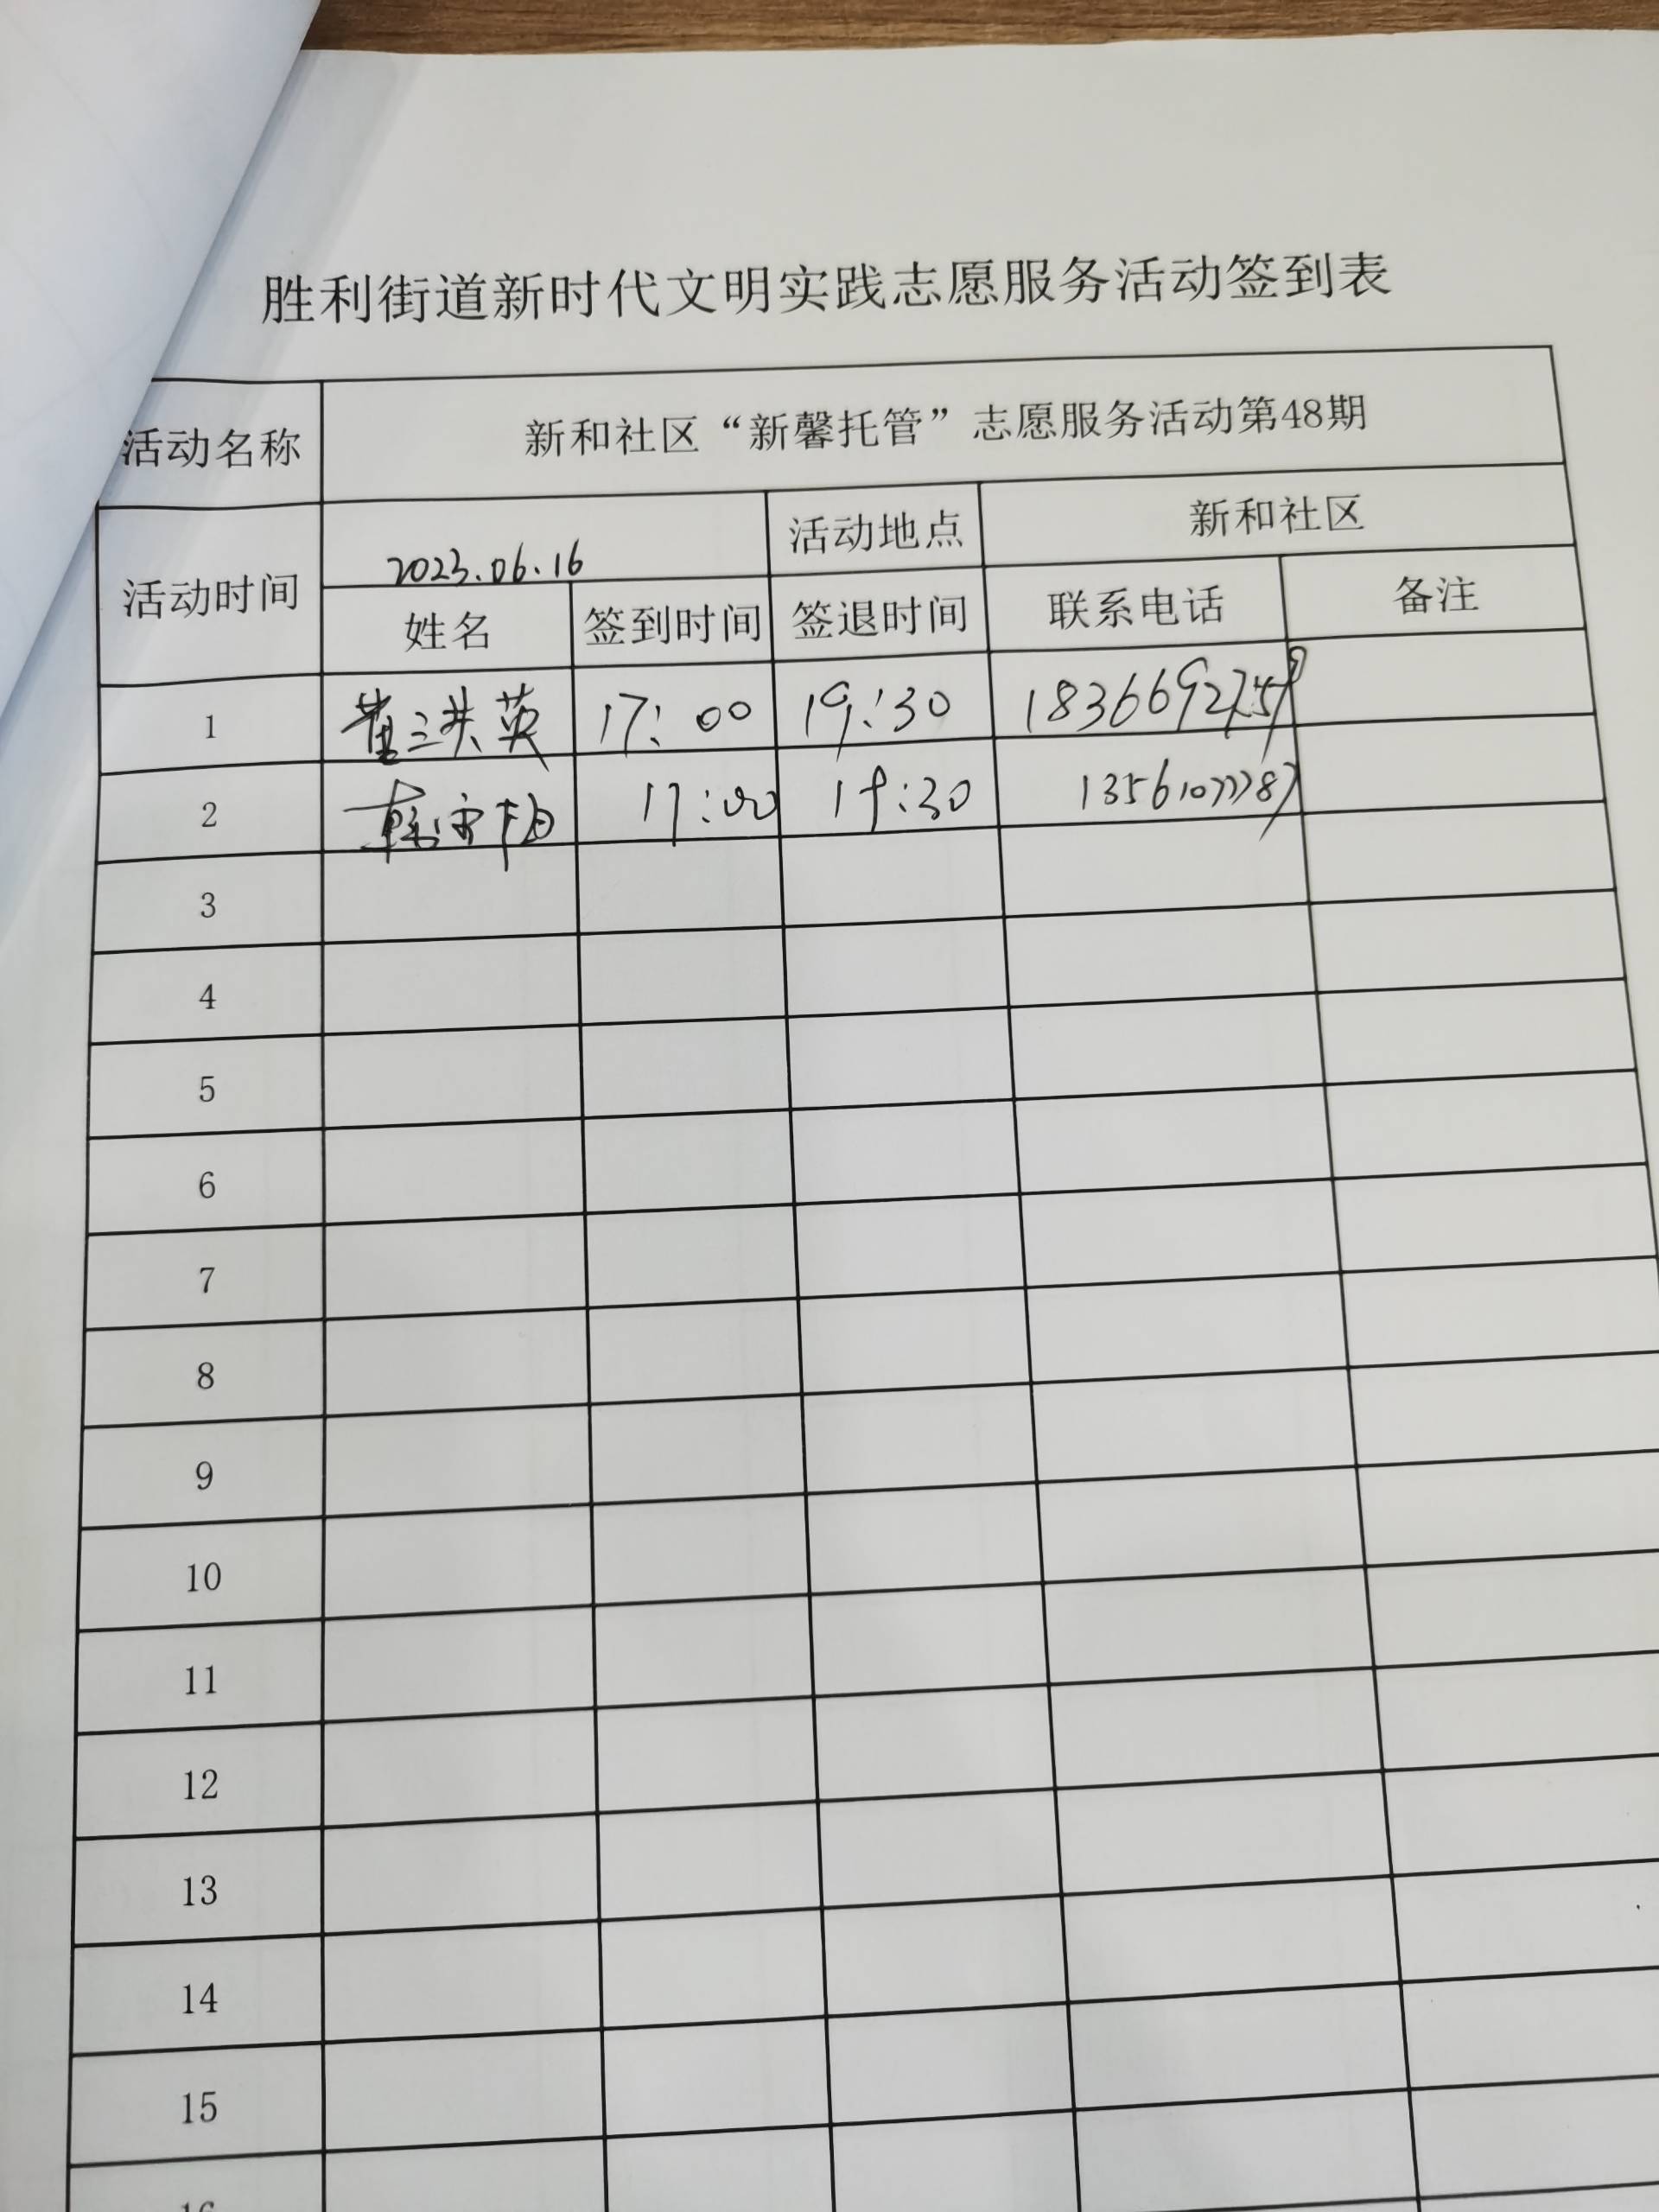 胜利街道新时代文明实践志愿服务活动签到表
活动名称 新和社区“新馨托管”志愿服务活动第48期
活动时间 2023.06.16 活动地点 新和社区
姓名 签到时间 签退时间 联系电话 备注
1 崔洪英 17:00 19:30 18366927259
2 17:00 19:30 13561077787
3
4
5
6
7
8
9
10
11
12
13
14
15
16